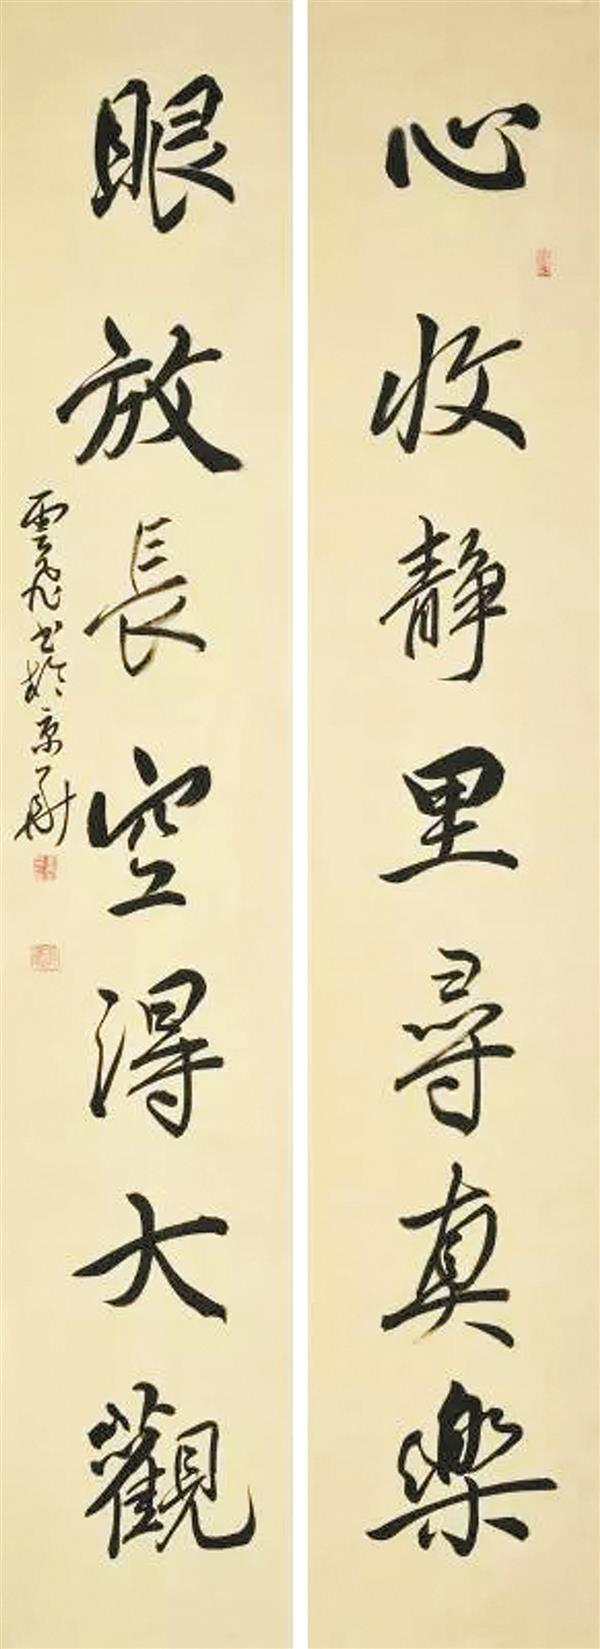 心收静里尋真樂
眼放長空得大觀
雲飛书於京華